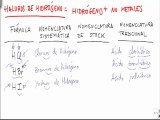 HALUROS DE HIDRÓGENO = HIDRÓGENO + NO METALES
FÓRMULA NOMENCLATURA SISTEMÁTICA NOMENCLATURA DE STOCK NOMENCLATURA TRADICIONAL
Cloruro de hidrógeno Ácido clorhídrico
HBr Bromuro de hidrógeno Ácido bromhídrico
HI Yoduro de hidrógeno Ácido yodhídrico